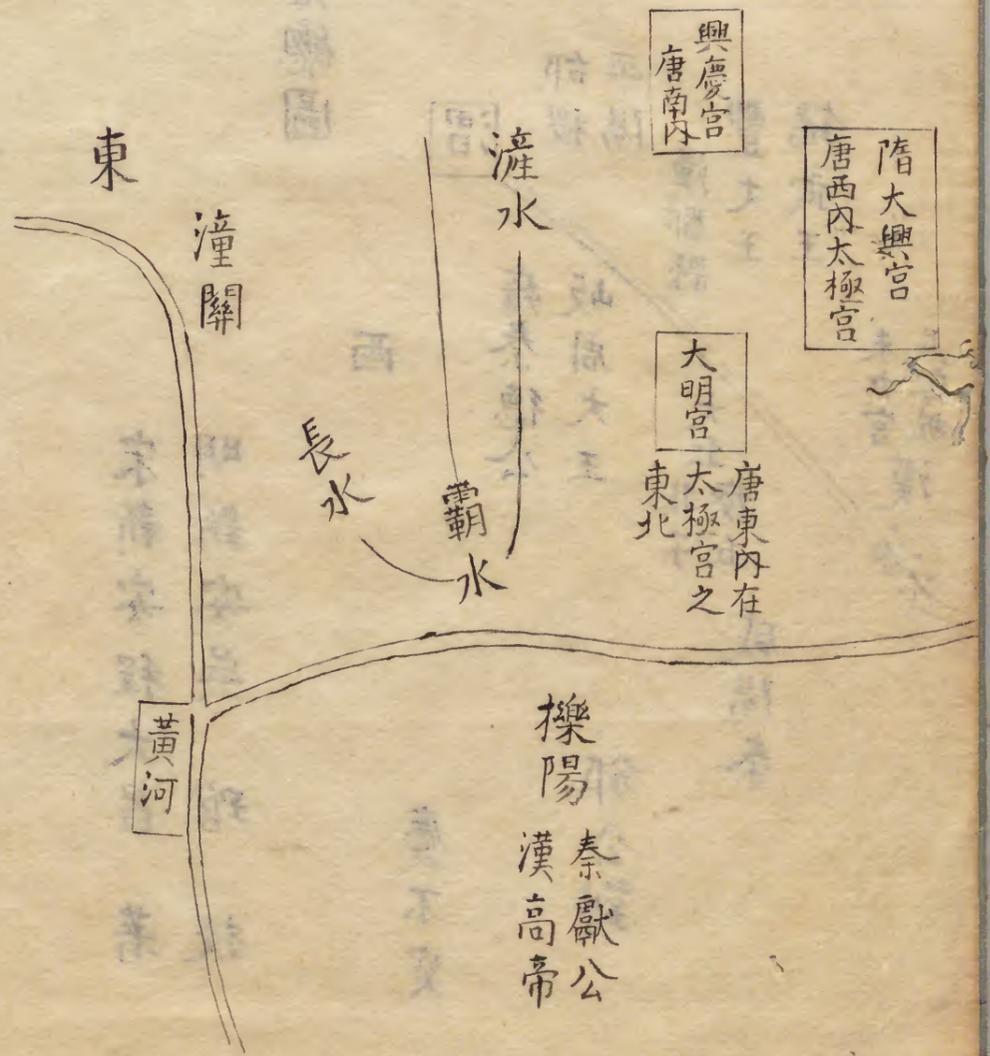 隋大興宮
唐西內太極宮
興慶宮
唐南內
大明宮
唐東內在
太極宮之
東北
滻水
霸水
長水
潼關
東
黃河
櫟陽
秦獻公
漢高帝